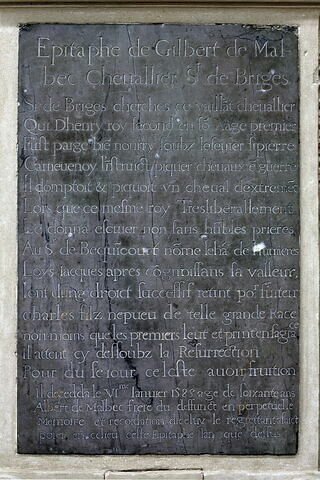 Epitaphe de Gilbert de Mal-
bec Cheuallier Sr de Briges
Si de Briges cherches ce vaillāt cheuallier
Qui Dhenry roy second en sō aage premier
Fust paige biē nourry soubz
Carneuenoy cheuaux
Il domptoit & picquoit vn cheual dextremēt
Lors que ce mesme roy Tresliberallement
Le donna non sans hūbles prieres
Au S. de Bequicourt nōme de Humieres
Loys Jacques apres cognoissans sa valleur,
Iont dung droict successif retint por
Charles filz nepueu de telle grande Race
non moins que les premiers leut
Il attent cy dessoubz la Resurrection
Pour du seiour celeste auoir fruition
Il deceda le VIme Ianuier 158 aage de soixante ans
Albert de Malbec Frere du deffunct en perpetuelle
Memoire et recordation dicelux le regrettant a faict
poser en ce lieu ceste Epitaphe lan que dessus